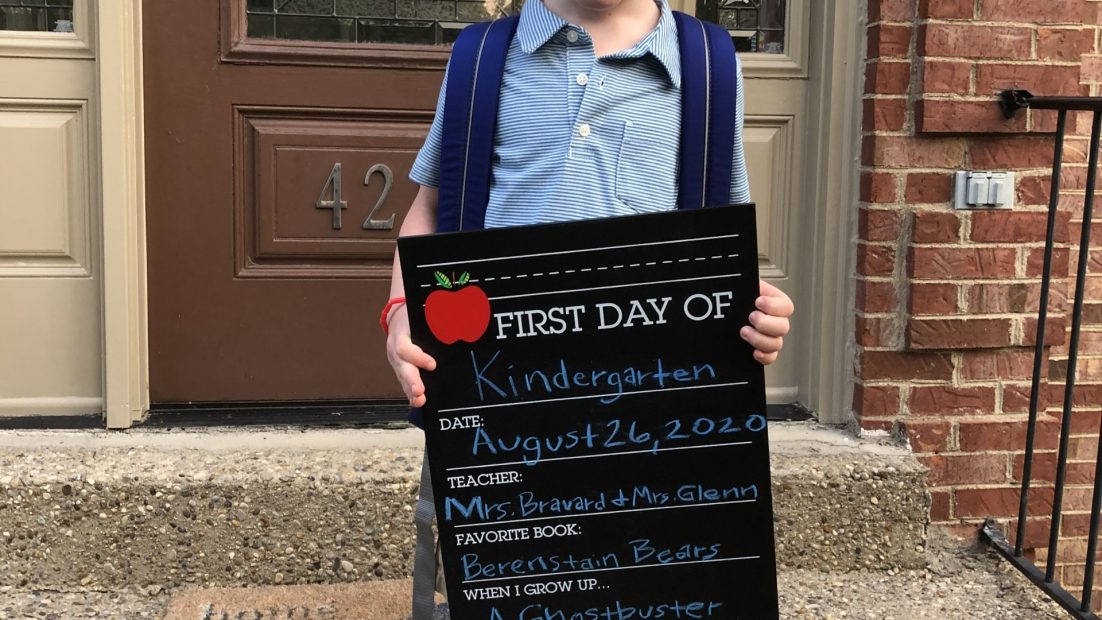 42
FIRST DAY OF
Kindergarten
DATE: August 26, 2020
TEACHER:
Mrs. Bravard & Mrs. Glenn
FAVORITE BOOK:
Berenstain Bears
WHEN I GROW UP...
A Ghostbuster